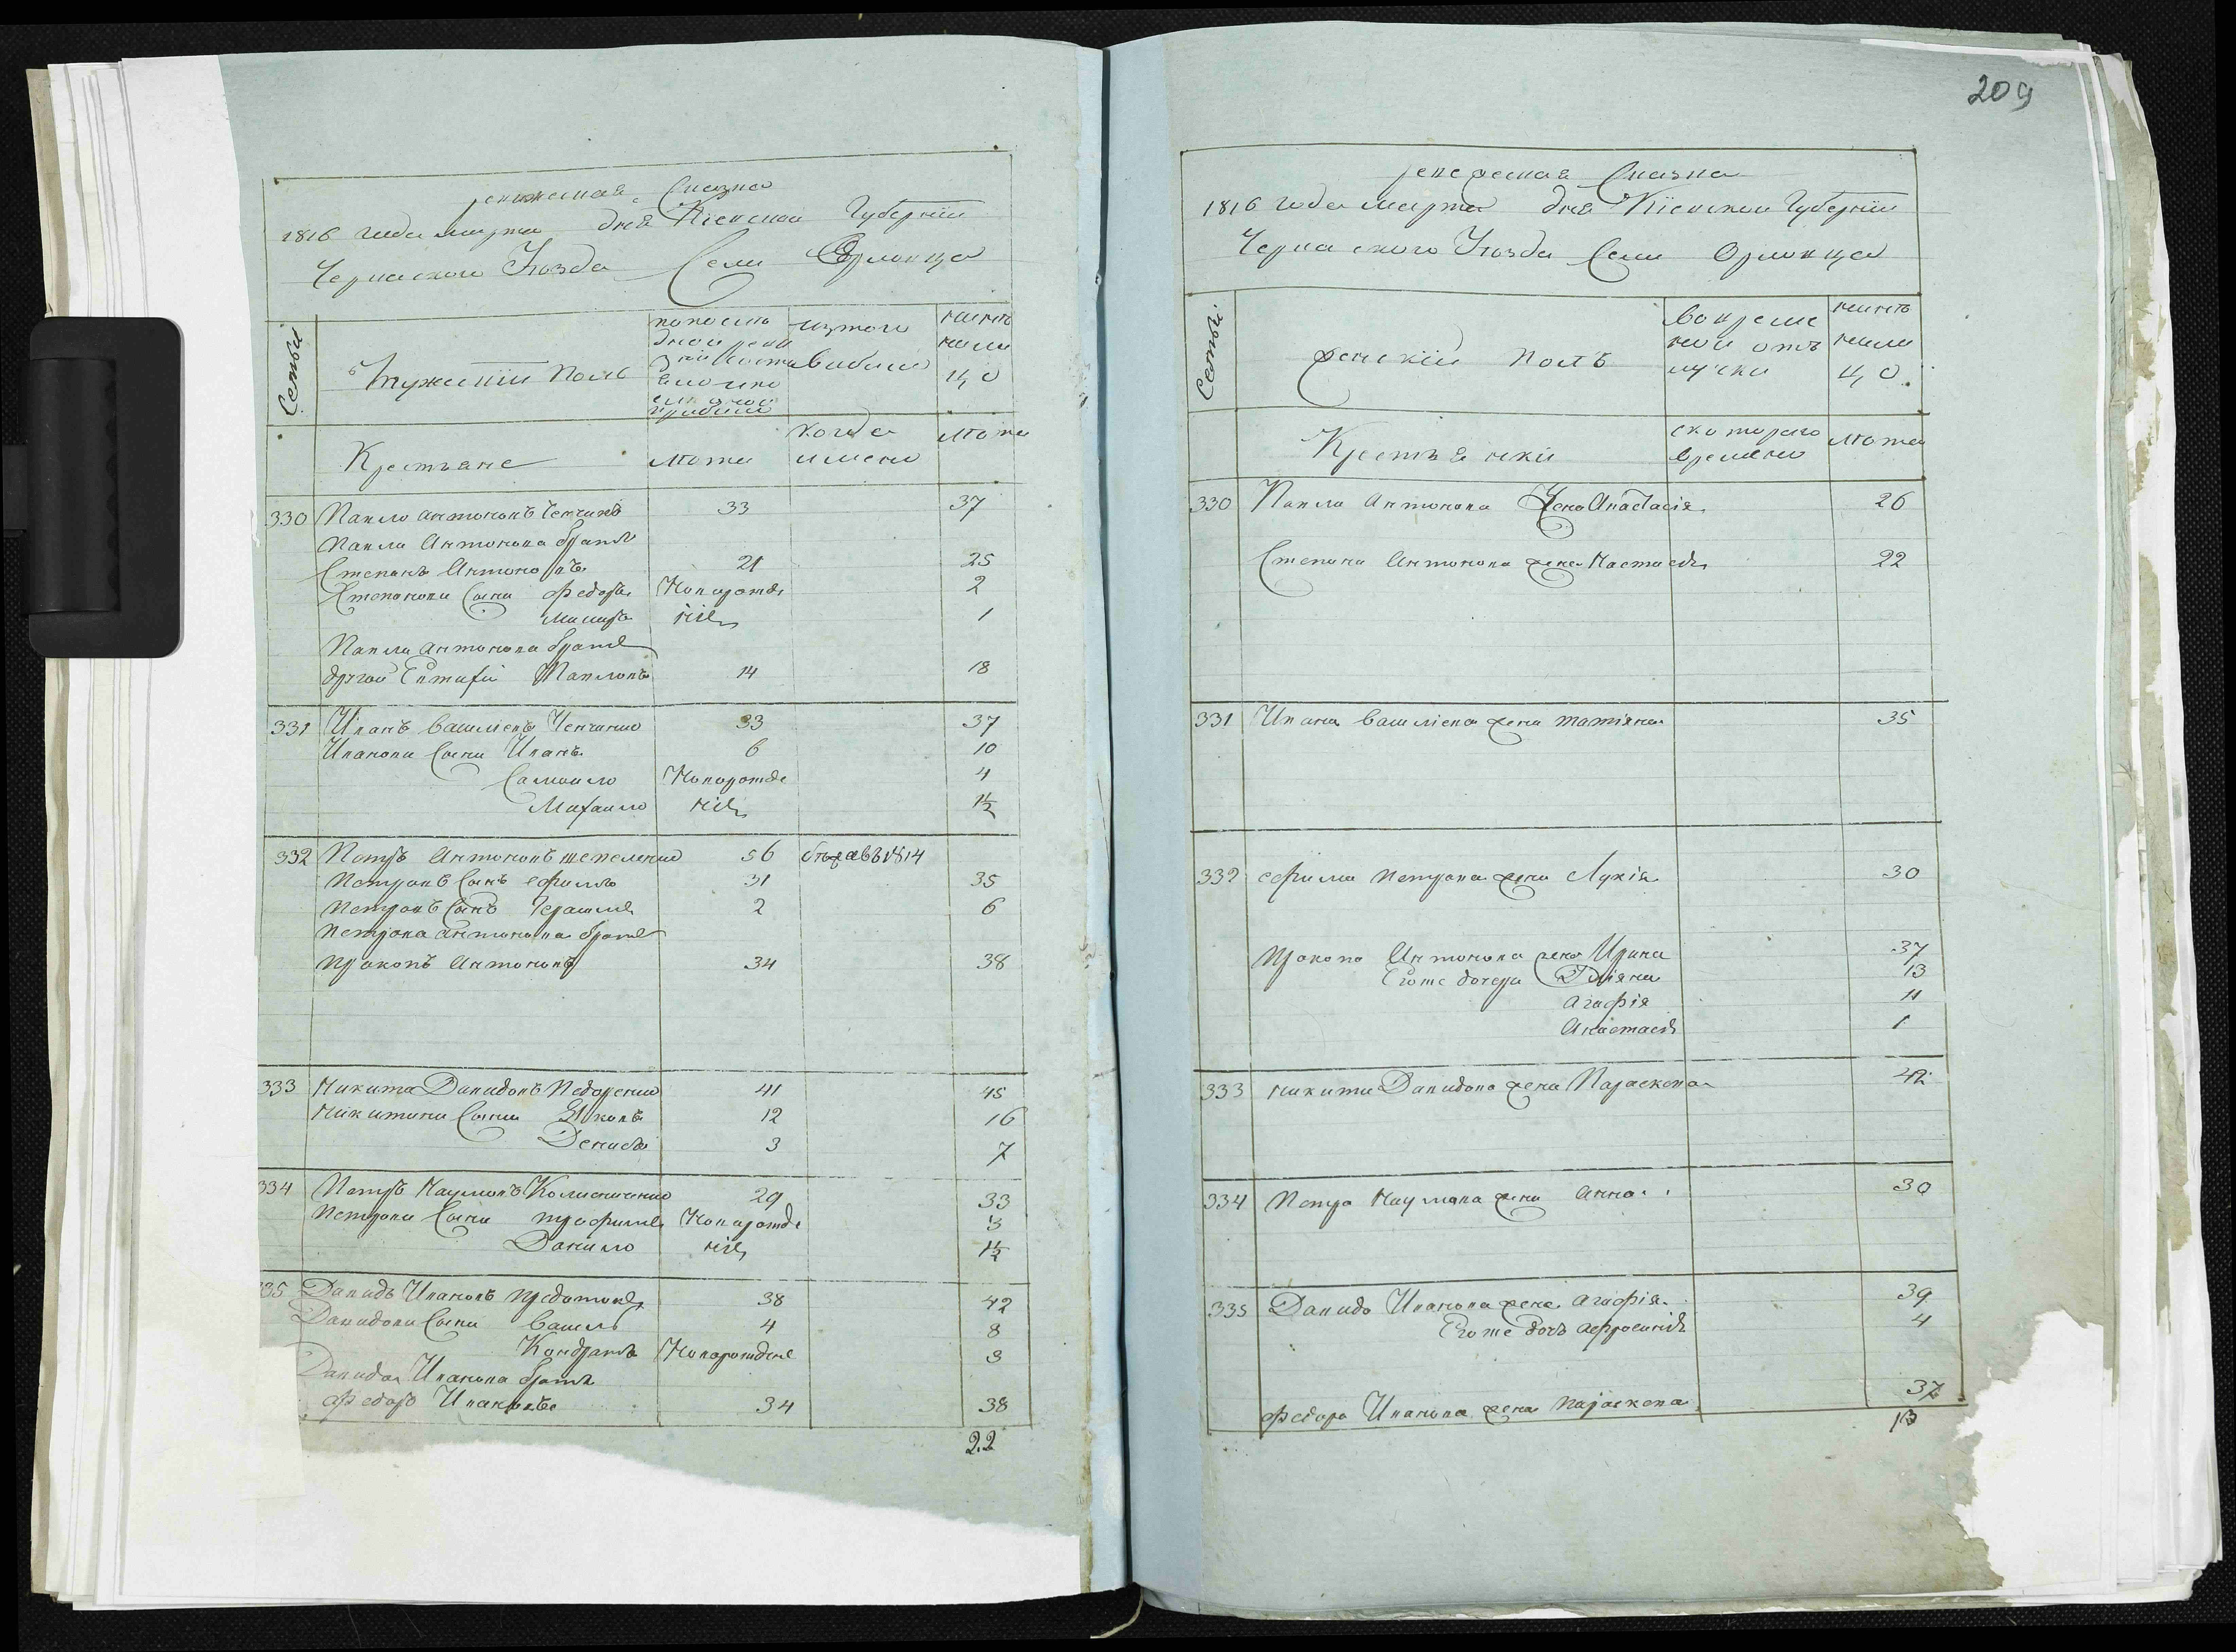 ревижская Сказка
1816 года марта дня Кіевской Губерніи
Черкаского Уѣзда Села Орловца
Семьи
Мужеский полъ
изтого
выбыло
нынѣ
на ли
цо
Крестьяне
лѣта
когда
имено
лѣта
330 Павло Антоновъ 33 37
Павла Антонова братъ
Степанъ Антоновъ 21 25
Степановы Сыны Федоръ Новорожде 2
нія 1
Павла Антонова братъ
другой Павловъ 14 18
331 Иванъ Василевъ 33 37
Ивановы Сыны Иванъ 6 10
Самойло Новорожде 4
Михайло нія 1½
332 Петръ Антоновъ Шепеленко 56 1814
Петровъ Сынъ Ефимъ 31 35
Петровъ Сынъ Герасимъ 2 6
Петрова Антонова братъ
Прокопъ Антоновъ 34 38
333 Никита Давидовъ Недоренко 41 45
Никитины Сыны Яковъ 12 16
Денисъ 3 7
334 Петръ Наумовъ 29 33
Петровы Сыны Трофимъ Новорожде 3
Данило нія 1½
335 Давидъ Ивановъ 38 42
Давидовы Сыны Василь 4 8
Кондратъ Новорожденъ 3
Давида Иванова братъ
Федоръ Ивановъ 34 38
22
209
ревежская Сказка
1816 года марта дня Кіевской Губерніи
Черкаского Уѣзда Села Орловца
Семьи
женскій полъ
Вовреме
ной отъ
лучки
нынѣ
нали
цо
Крестьянки
скотораго
времени
лѣта
330 Павла Антонова Жена Анастасія 26
Степана Антонова жена Настасія 22
331 Ивана Василіева жена Татіяна 35
332 Ефима Петрова жена Лукія 30
Прокопа Антонова жена Ирина 37
Егоже дочери Уліяна 13
Агафія 11
Анастасія 1
333 Никиты Давидова жена Параскева 42
334 Петра Наумова жена Анна 30
335 Давида Иванова жена Агафія 39
Егоже дочь 4
Федора Иванова жена Параскева 37
13